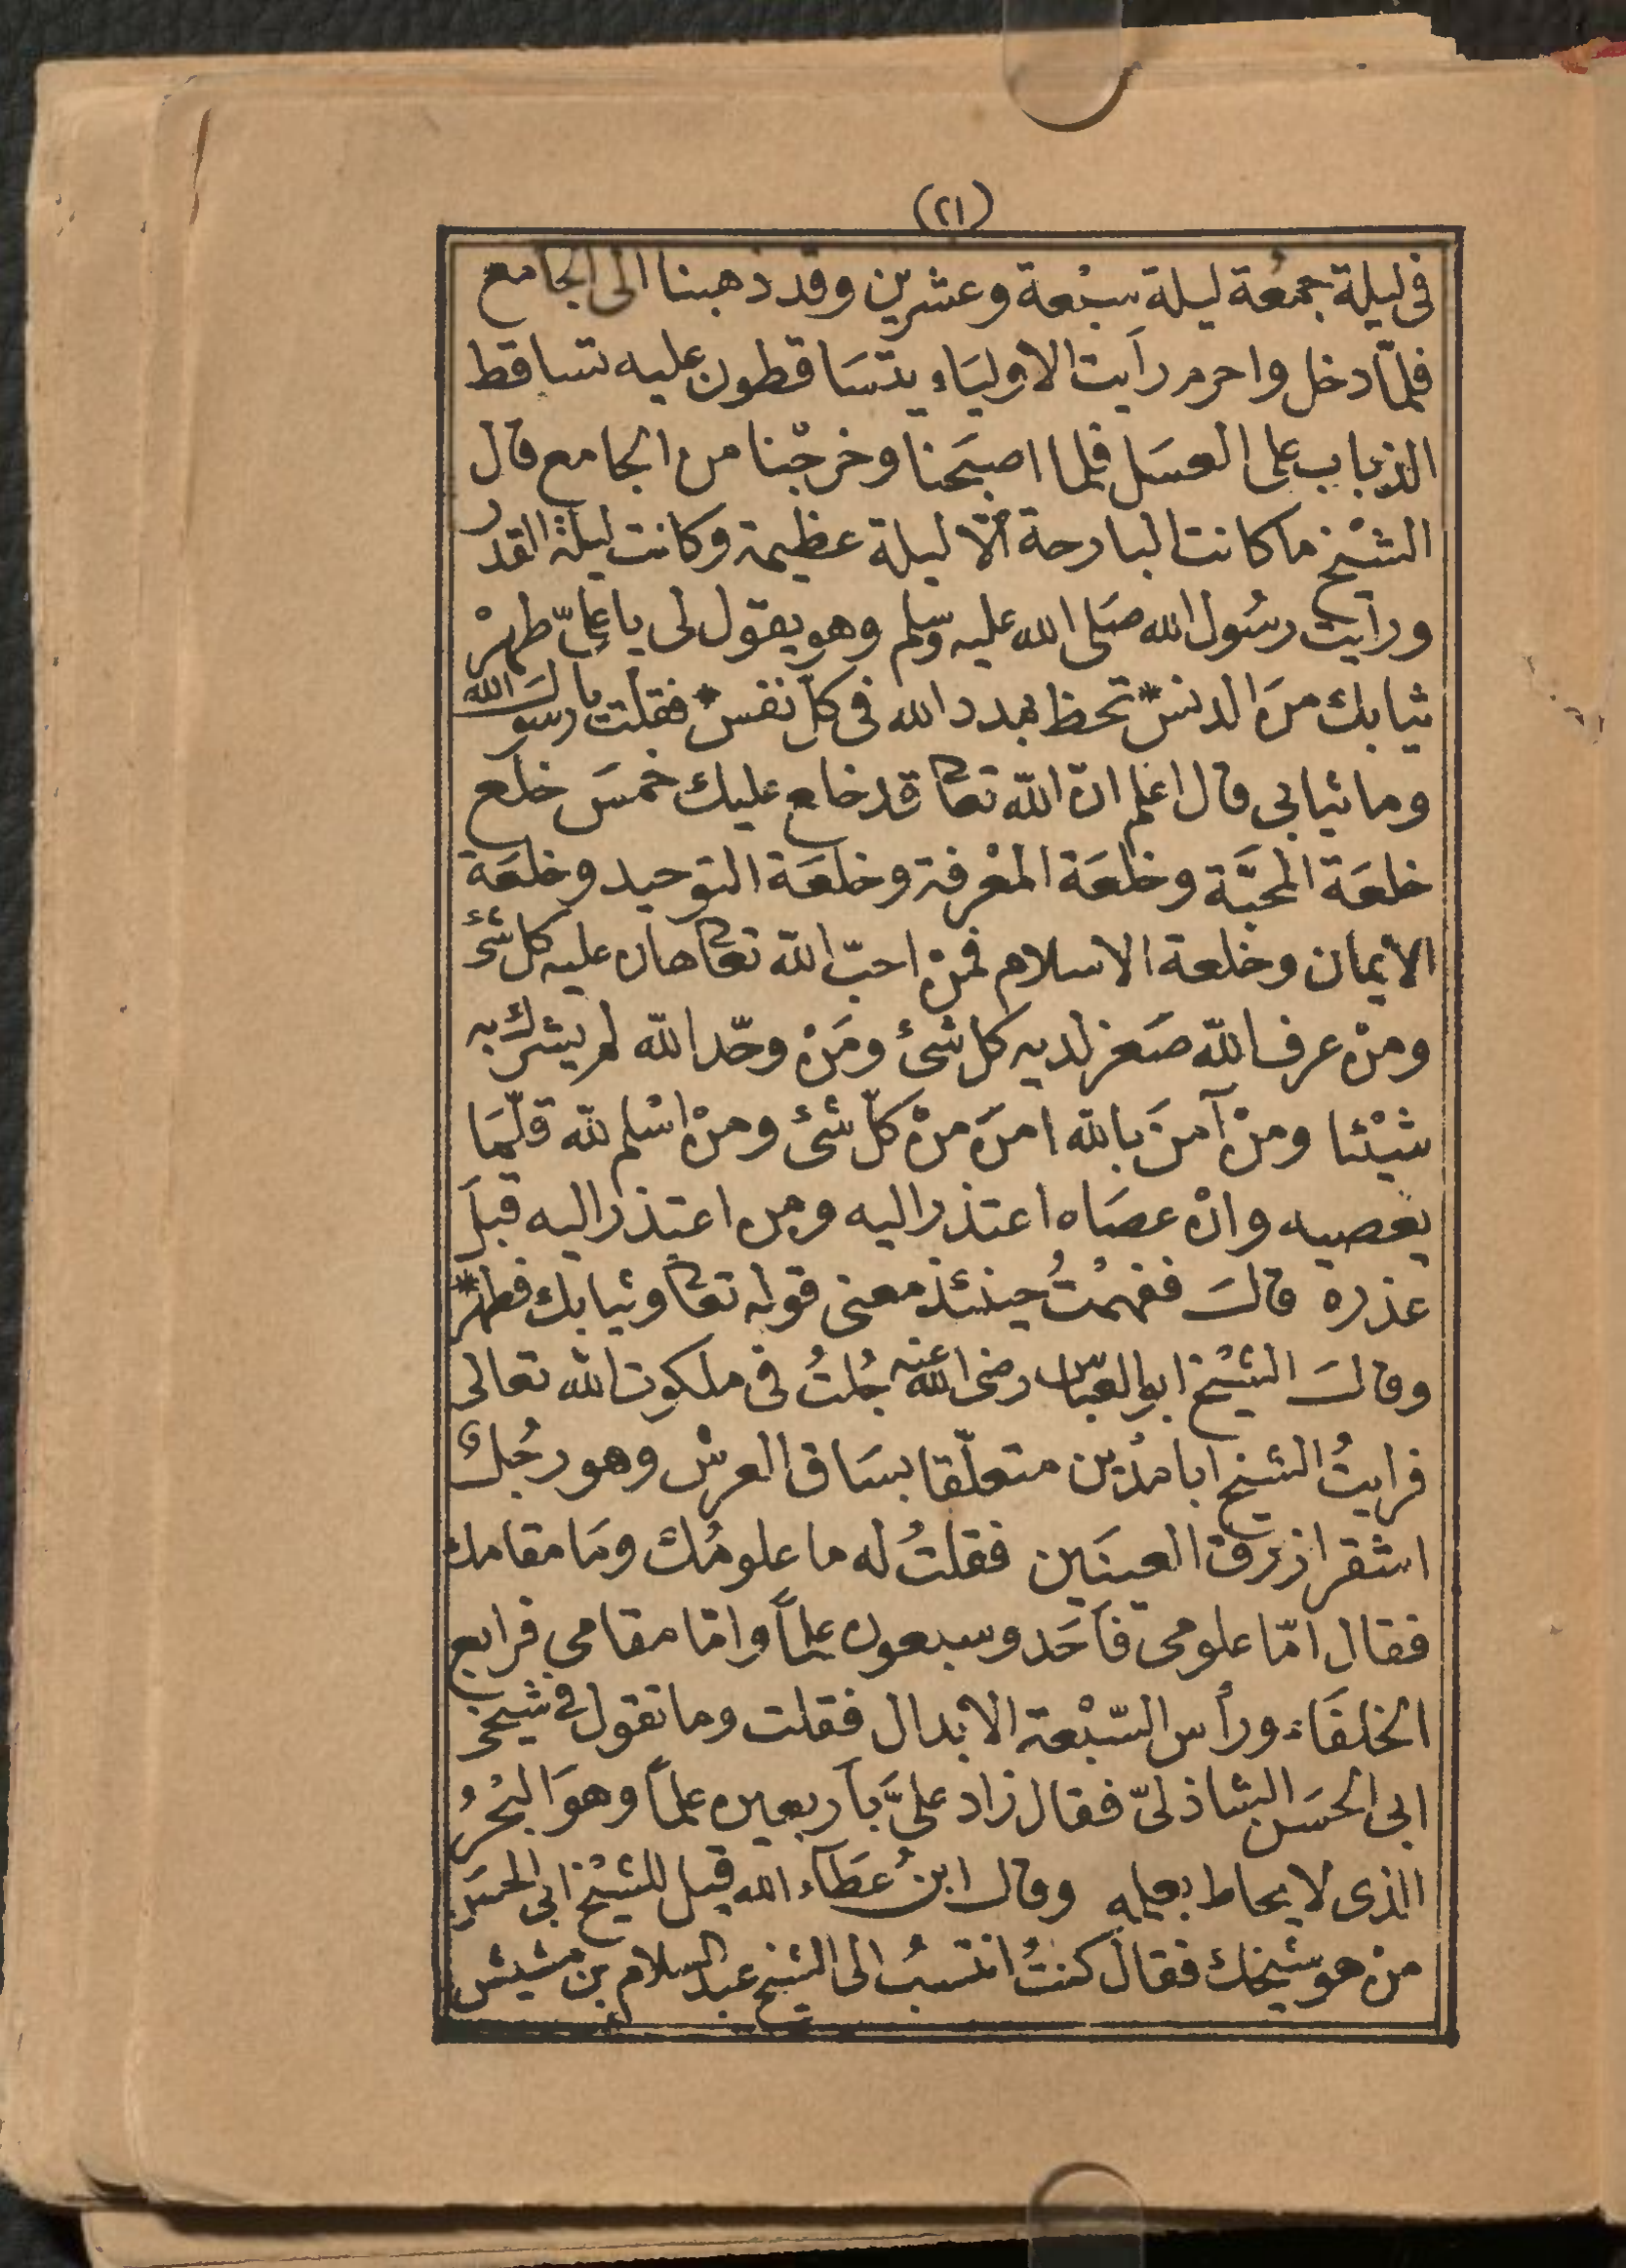 (٢١)
فى ليلة جمعة ليلة سبْعة وعشرين وقد ذهبنا الى الجامع
فلمّا دخل واحرم رأيت الاوليَاء يتسَاقطون عليه تساقط
الذباب على العسَل فلما اصبَحنا وخرجْنا من الجامع قال
الشيْخ ما كانت البارحة الّا ليلة عظيمة وكانت ليلة القدر
ورايت رسُول الله صَلى الله عليه وسلم وهو يقول لى يا علىّ طهرْ
ثيابك منَ الدنس * تحظ بمدد الله فى كلّ نفس * فقلت يا رسولَ الله
وما ثيابى قال اعْلم انّ الله تعا قد خلع عليك خمسَ خلع
خلعَة المحبَّة وخلعَة المعْرفة وخلعَة التوحيد وخلعَة
الايمان وخلعة الاسلام فمنْ احبّ الله تعا هان عليه كل شئ
ومنْ عرف الله صَغر لديه كل شئ ومَنْ وحّد الله لم يشرك به
شيْئا ومنْ آمنَ بالله امنَ منْ كلّ شئ ومنْ اسْلم لله قلّيمَا
يعصيه وانْ عصَاه اعتذر اليه ومن اعتذر اليه قبلَ
عذره قالَ ففهمْتُ حينئذ معنى قوله تعا وثيابك فطهّر *
وقالَ الشيْخ ابو العبّاس رضى الله عنه جُلتُ فى ملكوت الله تعالى
فرايتُ الشيخ ابا مدْين متعلّقا بسَاق العرش وهو رجُلٌ
اشقر ازرق العينَين فقلتُ له ما علومُك ومَا مقامك
فقال امّا علومى فأحَد وسبعون علماً وامّا مقامى فرابع
الخلفَاء ورأس السّبْعة الابْدال فقلت وما تقول فى شيخى
ابى الحسَن الشاذلىّ فقال زاد علىَّ بأربعين علماً وهوَ البحْرُ
الذى لا يحاط بعلمه وقال ابنُ عَطَآء الله قيل للشيْخ ابى الحسَن
منْ هو شيخك فقال كنتُ انتسبُ الى الشيخ عبد السلام بن مشيش